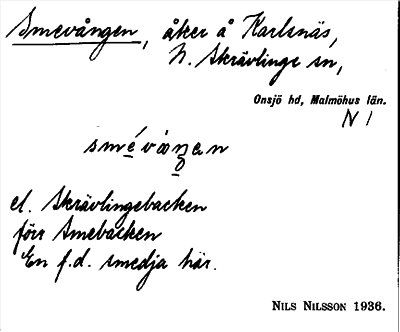 Smevången, åker å Karlsnäs,
N. Skrävlinge sn,
Onsjö hd, Malmöhus län.
N 1
smévåŋen
el. Skrävlingebacken
förr Smebacken
En f.d. smedja här.
NILS NILSSON 1936.